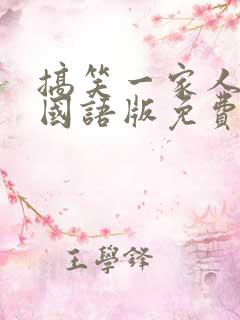 搞笑一家人
國語版免費
王學鋒